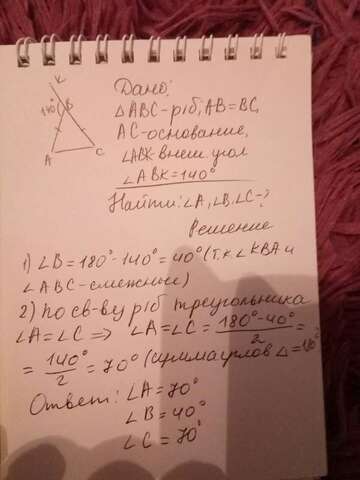 K
140°
B
A
C
Дано:
△ABC-р/б, AB=BC,
AC-основание,
∠ABK-внеш. угол
∠ABK=140°
Найти: ∠A, ∠B, ∠C-?
Решение
1) ∠B=180°-140°=40° (т.к ∠KBA и
∠ABC-смежные)
2) по св-ву р/б треугольника
∠A=∠C ⟹ ∠A=∠C = (180°-40°)/2 =
= 140°/2 = 70° (сумма углов △=180°
Ответ: ∠A=70°
∠B=40°
∠C=70°